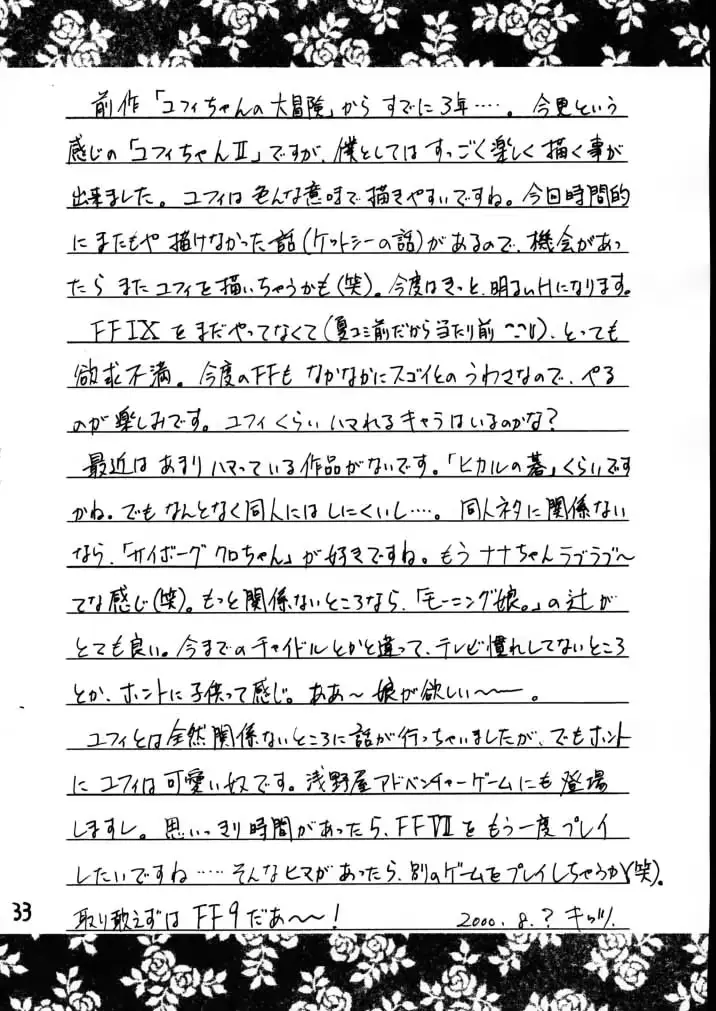 前作「ユフィちゃんの大冒険」からすでに3年‥‥。今更という
感じの「ユフィちゃんⅡ」ですが、僕としてはすっごく楽しく描く事が
出来ました。ユフィは色んな意味で描きやすいですね。今回時間的
にまたもや描けなかった話(ケットシーの話)があるので、機会があっ
たらまたユフィを描いちゃうかも(笑)。今度はきっと、明るいHになります。
FFⅨをまだやってなくて(夏コミ前だから当たり前)、とっても
欲求不満。今度のFFもなかなかにスゴイとのうわさなので、やる
のが楽しみです。ユフィくらいハマれるキャラはいるのかな?
最近はあまりハマっている作品がないです。「ヒカルの碁」くらいです
かね。でもなんとなく同人にはしにくいし‥‥。同人ネタに関係ない
なら、「サイボーグクロちゃん」が好きですね。もうナナちゃんラブラブ〜
てな感じ(笑)。もっと関係ないところなら、「モーニング娘。」の辻が
とても良い。今までのチャイドルとかと違って、テレビ慣れしてないところ
とか、ホントに子供って感じ。ああ〜娘が欲しい〜〜。
ユフィとは全然関係ないところに話が行っちゃいましたが、でもホント
にユフィは可愛い奴です。浅野屋アドベンチャーゲームにも登場
しますし。思いっきり時間があったら、FFⅦをもう一度プレイ
したいですね‥‥そんなヒマがあったら、別のゲームをプレイしちゃうか(笑)。
取り敢えずはFF9だあ〜〜!
2000.8.?キッツ
33